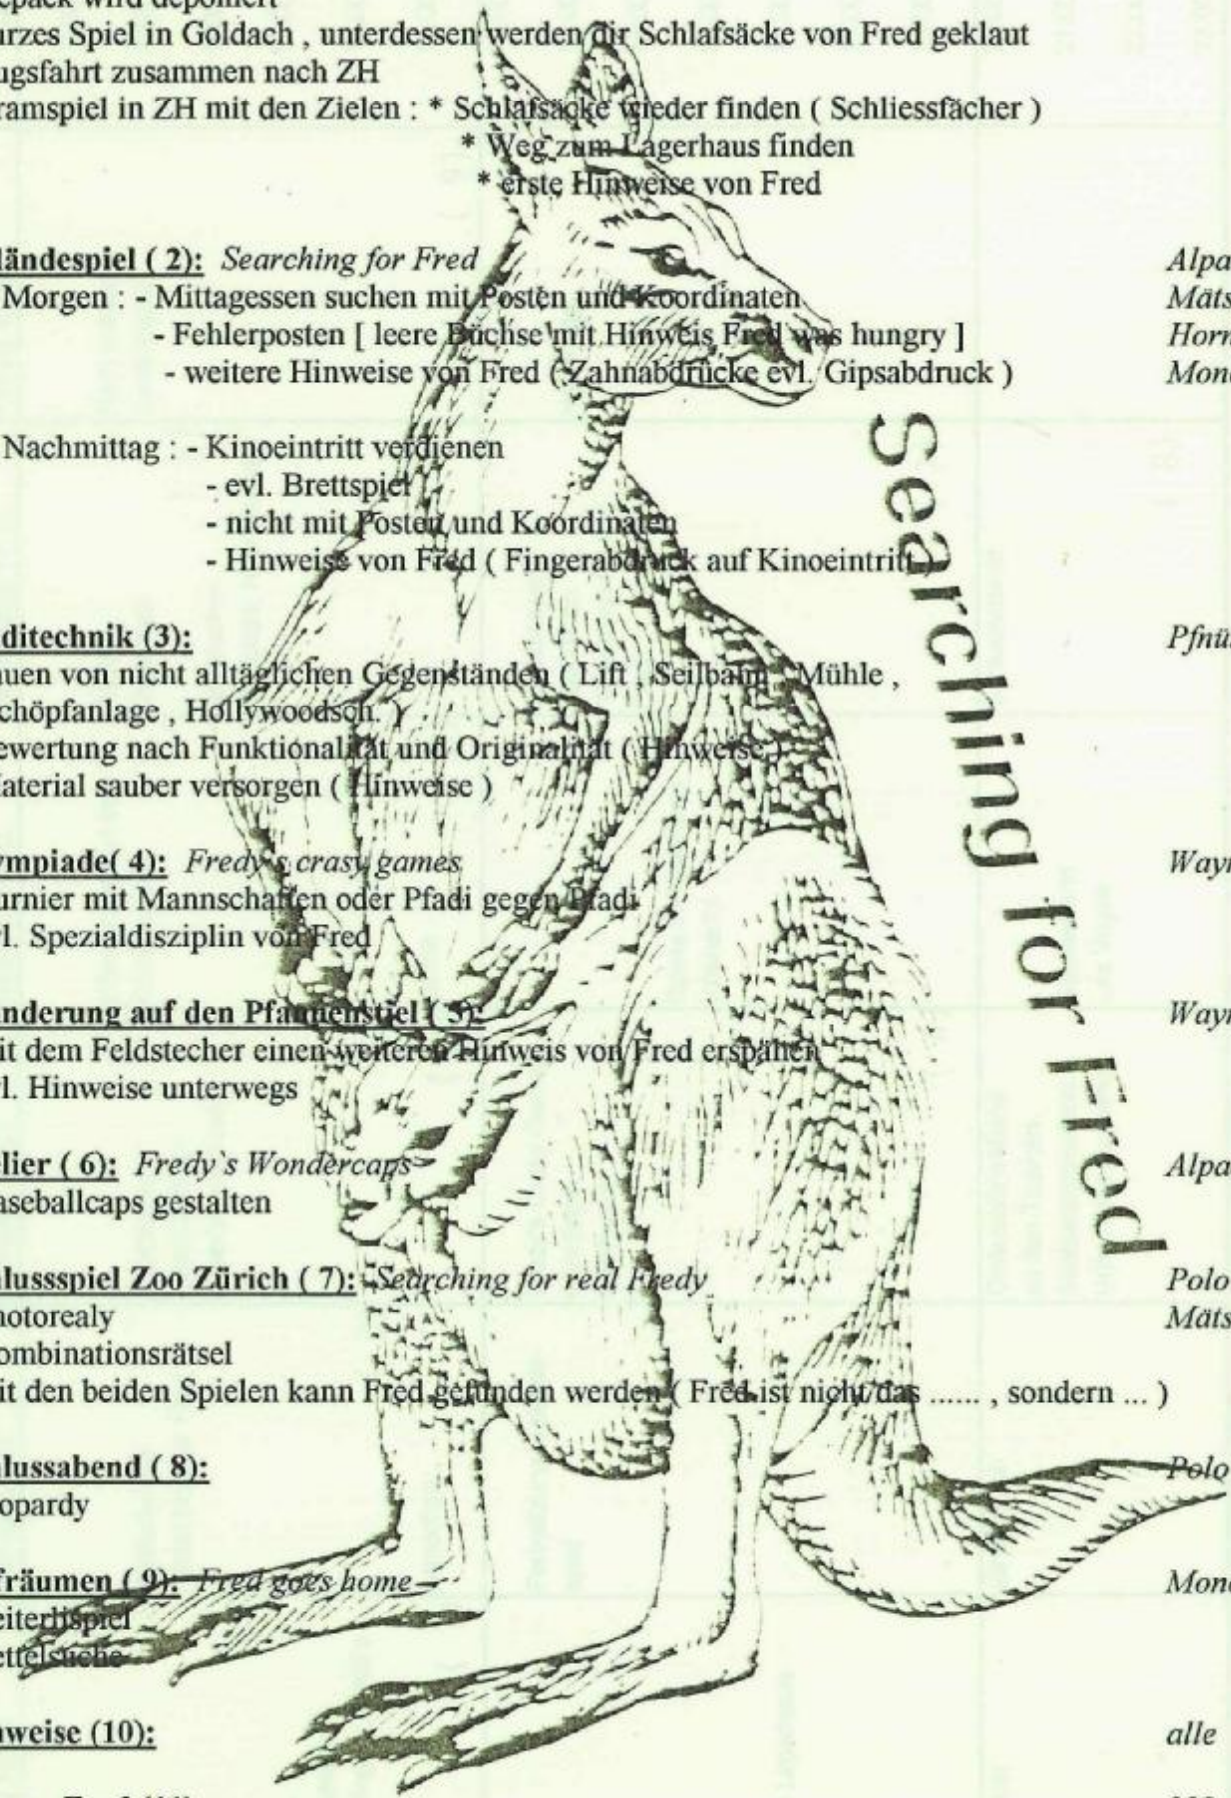 epäck wird deponiert
urzes Spiel in Goldach , unterdessen werden dir Schlafsäcke von Fred geklaut
ugsfahrt zusammen nach ZH
ramspiel in ZH mit den Zielen : * Schlafsäcke wieder finden ( Schliessfächer )
* Weg zum Lagerhaus finden
* erste Hinweise von Fred
ländespiel ( 2): Searching for Fred Alpa
Morgen : - Mittagessen suchen mit Posten und Koordinaten Mäts
- Fehlerposten [ leere Büchse mit Hinweis Fred was hungry ] Horn
- weitere Hinweise von Fred ( Zahnabdrücke evl. Gipsabdruck ) Mono
Nachmittag : - Kinoeintritt verdienen
- evl. Brettspiel
- nicht mit Posten und Koordinaten
- Hinweise von Fred ( Fingerabdruck auf Kinoeintritt )
Searching for Fred
ditechnik (3): Pfnü
auen von nicht alltäglichen Gegenständen ( Lift , Seilbahn , Mühle ,
chöpfanlage , Hollywoodsch. )
ewertung nach Funktionalität und Originalität ( Hinweise )
laterial sauber versorgen ( Hinweise )
ympiade( 4): Fredy`s crasy games Wayn
urnier mit Mannschaften oder Pfadi gegen Pfadi
l. Spezialdisziplin von Fred
anderung auf den Pfannenstiel ( 5): Wayn
it dem Feldstecher einen weiteren Hinweis von Fred erspähen
l. Hinweise unterwegs
lier ( 6): Fredy`s Wondercaps Alpa
aseballcaps gestalten
lussspiel Zoo Zürich ( 7): Searching for real Fredy Polo
hotorealy Mäts
ombinationsrätsel
it den beiden Spielen kann Fred gefunden werden ( Fred ist nicht das ...... , sondern ... )
lussabend ( 8): Polo
opardy
fräumen ( 9): Fred goes home Mono
eiterlispiel
ettelsuche
nweise (10): alle